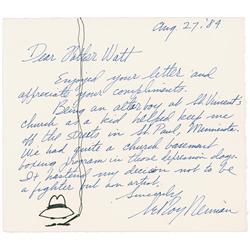 Aug. 27 '89
Dear Father Watt
Enjoyed your letter and
appreciate your compliments.
Being an alterboy at St Vincent's
church as a kid helped keep me
off the streets in St Paul, Minnesota.
We had quite a church basement
boxing program in those depression days.
It hastend my decision not to be
a fighter but an artist.
Sincerely
LeRoy Neiman